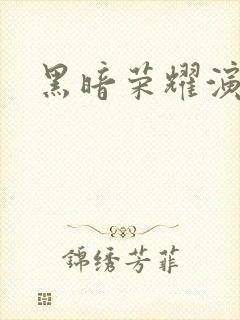 黑暗荣耀演
錦绣芳菲